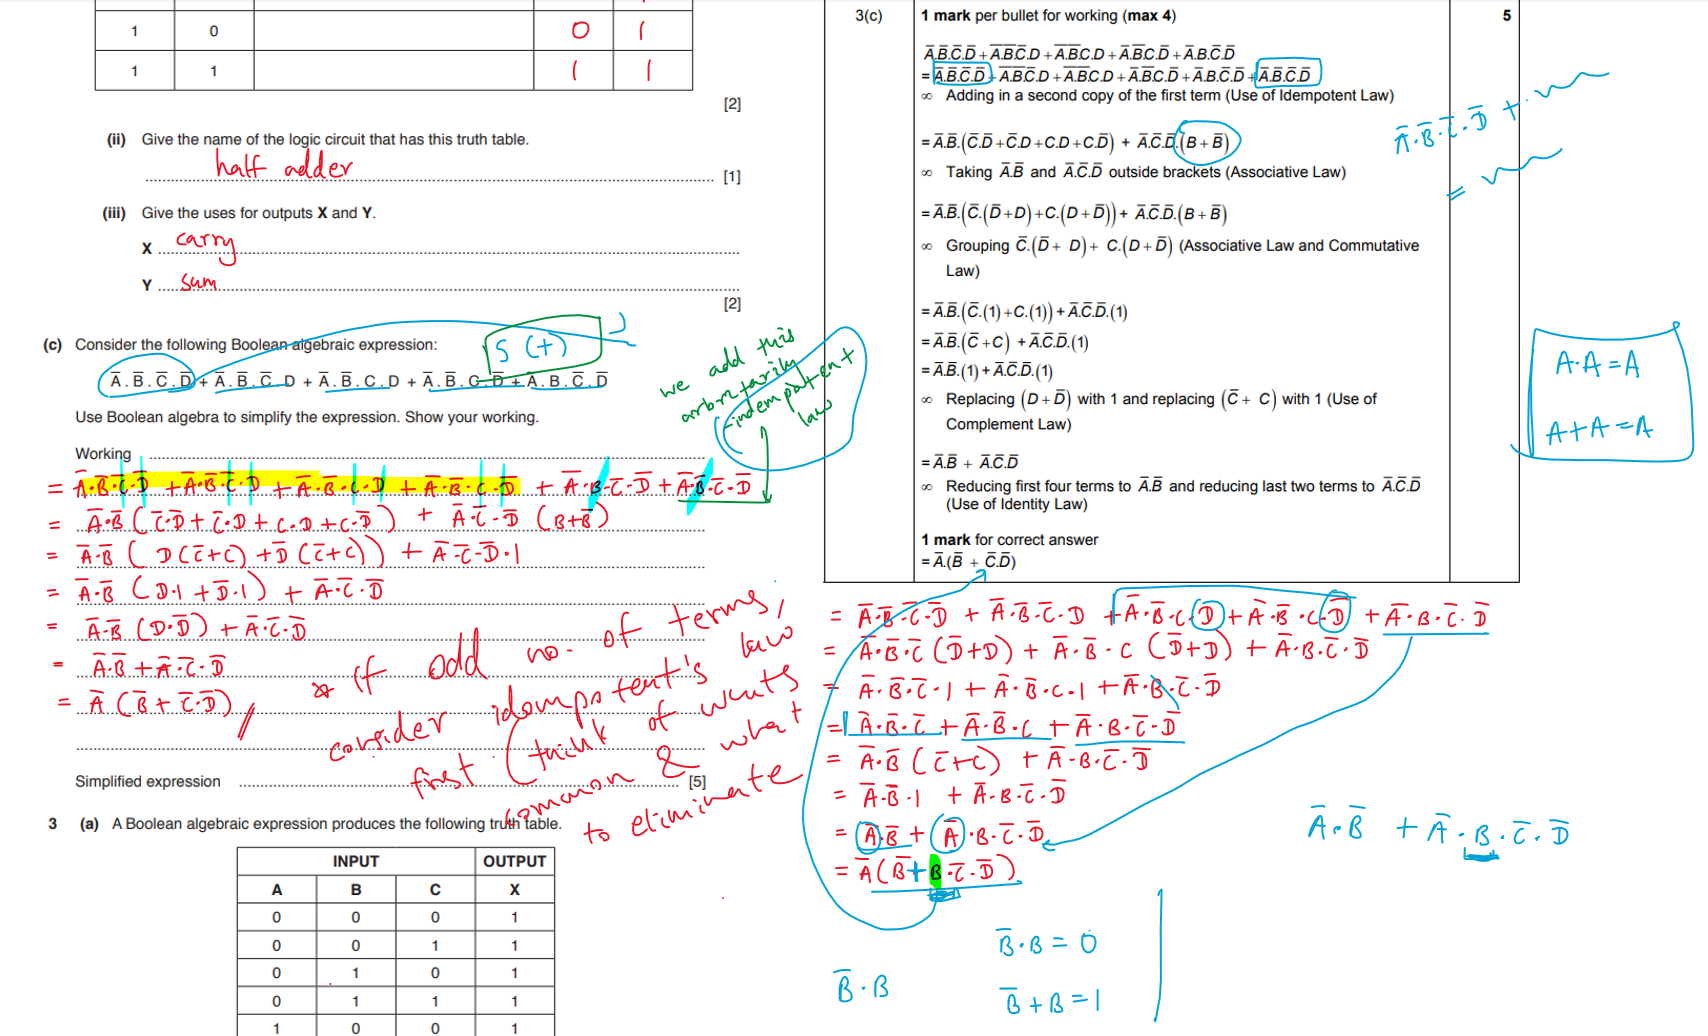 1 0 0 1
1 1 1 1
[2]
(ii) Give the name of the logic circuit that has this truth table.
half adder
[1]
(iii) Give the uses for outputs X and Y.
X carry
Y sum
[2]
(c) Consider the following Boolean algebraic expression:
5 (+)
A̅.B̅.C̅.D̅ + A̅.B̅.C̅.D + A̅.B̅.C.D + A̅.B̅.C.D̅ + A̅.B.C̅.D̅
Use Boolean algebra to simplify the expression. Show your working.
we add this
arbretarily
indempotent
law
Working
= A̅·B̅·C̅·D̅ + A̅·B̅·C̅·D + A̅·B̅·C·D + A̅·B̅·C·D̅ + A̅·B·C̅·D̅ + A̅·B̅·C̅·D̅
= A̅·B̅ (C̅·D̅ + C̅·D + C·D + C·D̅) + A̅·C̅·D̅ (B+B̅)
= A̅·B̅ ( D(C̅+C) + D̅(C̅+C)) + A̅·C̅·D̅·1
= A̅·B̅ (D·1 + D̅·1) + A̅·C̅·D̅
= A̅·B̅ (D·D̅) + A̅·C̅·D̅
= A̅·B̅ + A̅·C̅·D̅
= A̅ (B̅ + C̅·D̅)
* if odd no. of terms,
consider idempotent's law
first (think of wants
common & what
to eliminate
Simplified expression
[5]
3 (a) A Boolean algebraic expression produces the following truth table.
INPUT OUTPUT
A B C X
0 0 0 1
0 0 1 1
0 1 0 1
0 1 1 1
1 0 0 1
3(c) 1 mark per bullet for working (max 4) 5
A̅.B̅.C̅.D̅ + A̅.B̅.C̅.D + A̅.B̅.C.D + A̅.B̅.C.D̅ + A̅.B.C̅.D̅
= A̅.B̅.C̅.D̅ + A̅.B̅.C̅.D + A̅.B̅.C.D + A̅.B̅.C.D̅ + A̅.B.C̅.D̅ + A̅.B̅.C̅.D̅
∞ Adding in a second copy of the first term (Use of Idempotent Law)
= A̅.B̅.(C̅.D̅ + C̅.D + C.D + C.D̅) + A̅.C̅.D̅.(B + B̅)
∞ Taking A̅.B̅ and A̅.C̅.D̅ outside brackets (Associative Law)
= A̅.B̅.(C̅.(D̅ + D) + C.(D + D̅)) + A̅.C̅.D̅.(B + B̅)
∞ Grouping C̅.(D̅ + D) + C.(D + D̅) (Associative Law and Commutative
Law)
= A̅.B̅.(C̅.(1) + C.(1)) + A̅.C̅.D̅.(1)
= A̅.B̅.(C̅ + C) + A̅.C̅.D̅.(1)
= A̅.B̅.(1) + A̅.C̅.D̅.(1)
∞ Replacing (D + D̅) with 1 and replacing (C̅ + C) with 1 (Use of
Complement Law)
= A̅.B̅ + A̅.C̅.D̅
∞ Reducing first four terms to A̅.B̅ and reducing last two terms to A̅.C̅.D̅
(Use of Identity Law)
1 mark for correct answer
= A̅.(B̅ + C̅.D̅)
A̅·B̅·C̅·D̅ +
=
A·A = A
A+A = A
= A̅·B̅·C̅·D̅ + A̅·B̅·C̅·D + A̅·B̅·C·D + A̅·B̅·C·D̅ + A̅·B·C̅·D̅
= A̅·B̅·C̅ (D̅+D) + A̅·B̅·C (D̅+D) + A̅·B·C̅·D̅
= A̅·B̅·C̅·1 + A̅·B̅·C·1 + A̅·B·C̅·D̅
= A̅·B̅·C̅ + A̅·B̅·C + A̅·B·C̅·D̅
= A̅·B̅ (C̅+C) + A̅·B·C̅·D̅
= A̅·B̅·1 + A̅·B·C̅·D̅
= A̅·B̅ + A̅·B·C̅·D̅
= A̅(B̅ + B·C̅·D̅)
A̅·B̅ + A̅·B·C̅·D̅
B̅·B
B̅·B = 0
B̅+B = 1